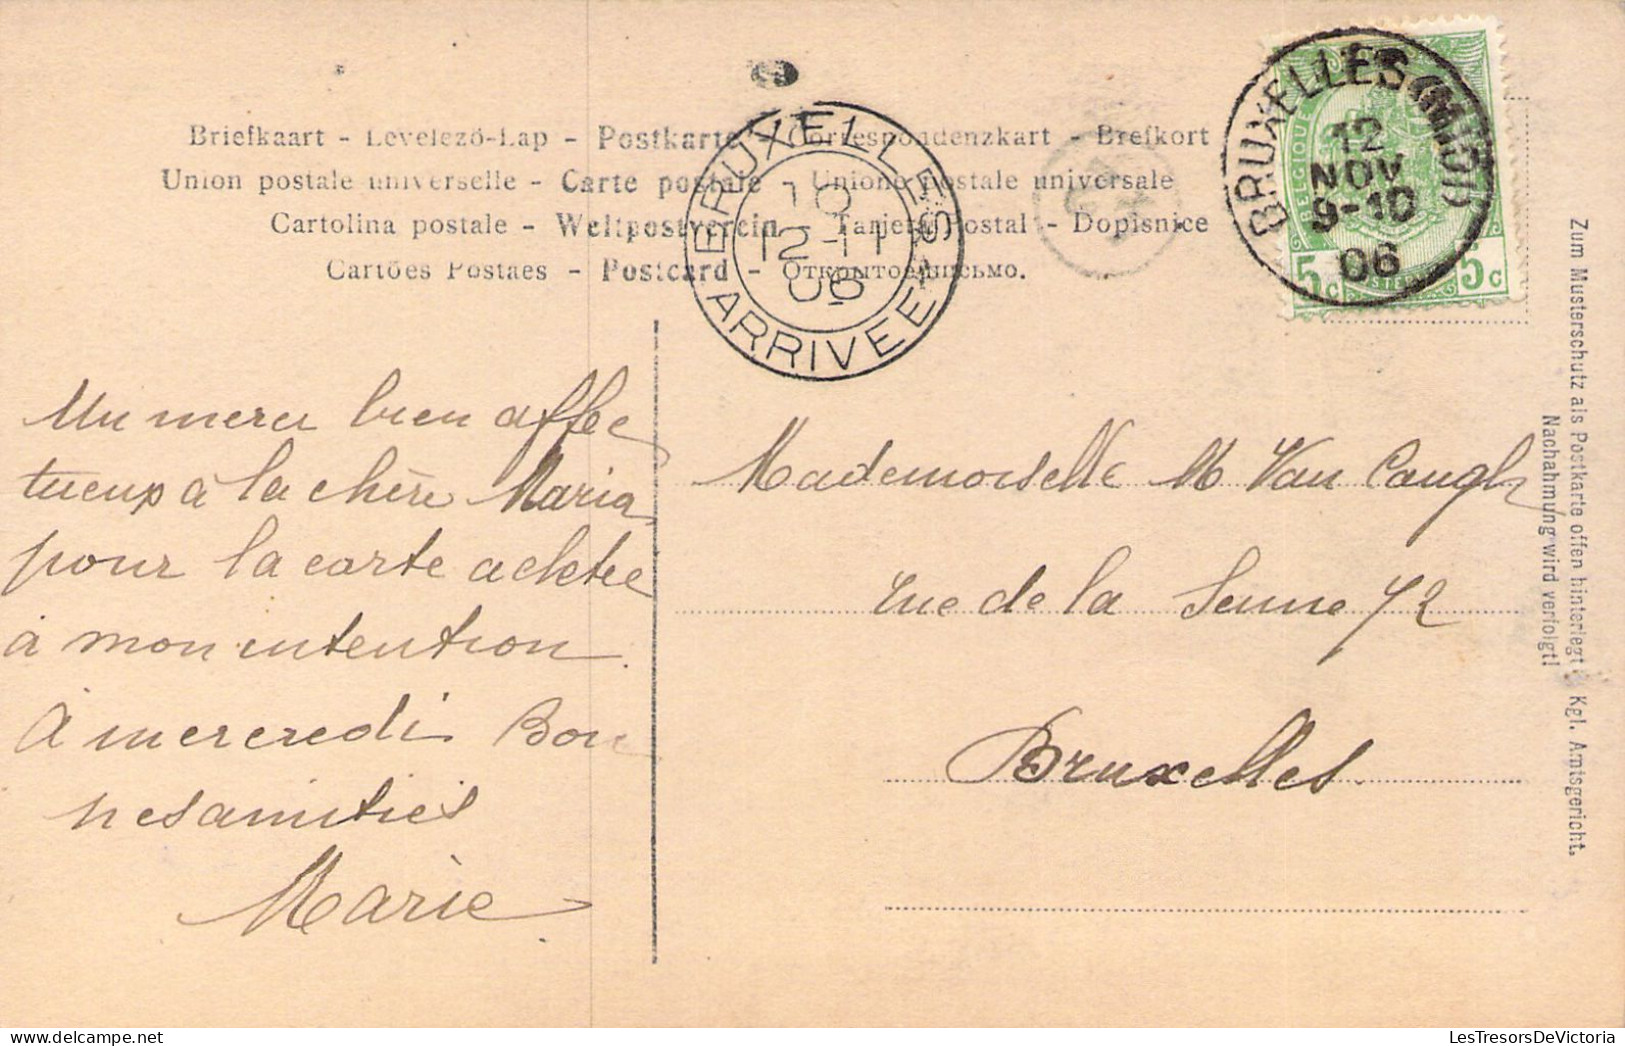 Briefkaart - Levelező-Lap - Postkarte - Correspondenzkart - Brefkort
Union postale universelle - Carte postale - Unione postale universale
Cartolina postale - Weltpostverein - Tarjeta Postal - Dopisnice
Cartões Postaes - Postcard - Открытое письмо.
BRUXELLES
ARRIVEE
10
12-11
06
BRUXELLES (MIDI)
12
NOV
9-10
06
BELGIQUE
5c 5c
Un merci bien affec
tueux à la chère Maria
pour la carte achetée
à mon intention.
A mercredi Bon
nes amitiés
Marie
Mademoiselle M Van Caugh
rue de la Senne 72
Bruxelles
Zum Musterschutz als Postkarte offen hinterlegt. Kgl. Amtsgericht.
Nachahmung wird verfolgt!
LesTresorsDeVictoria.com